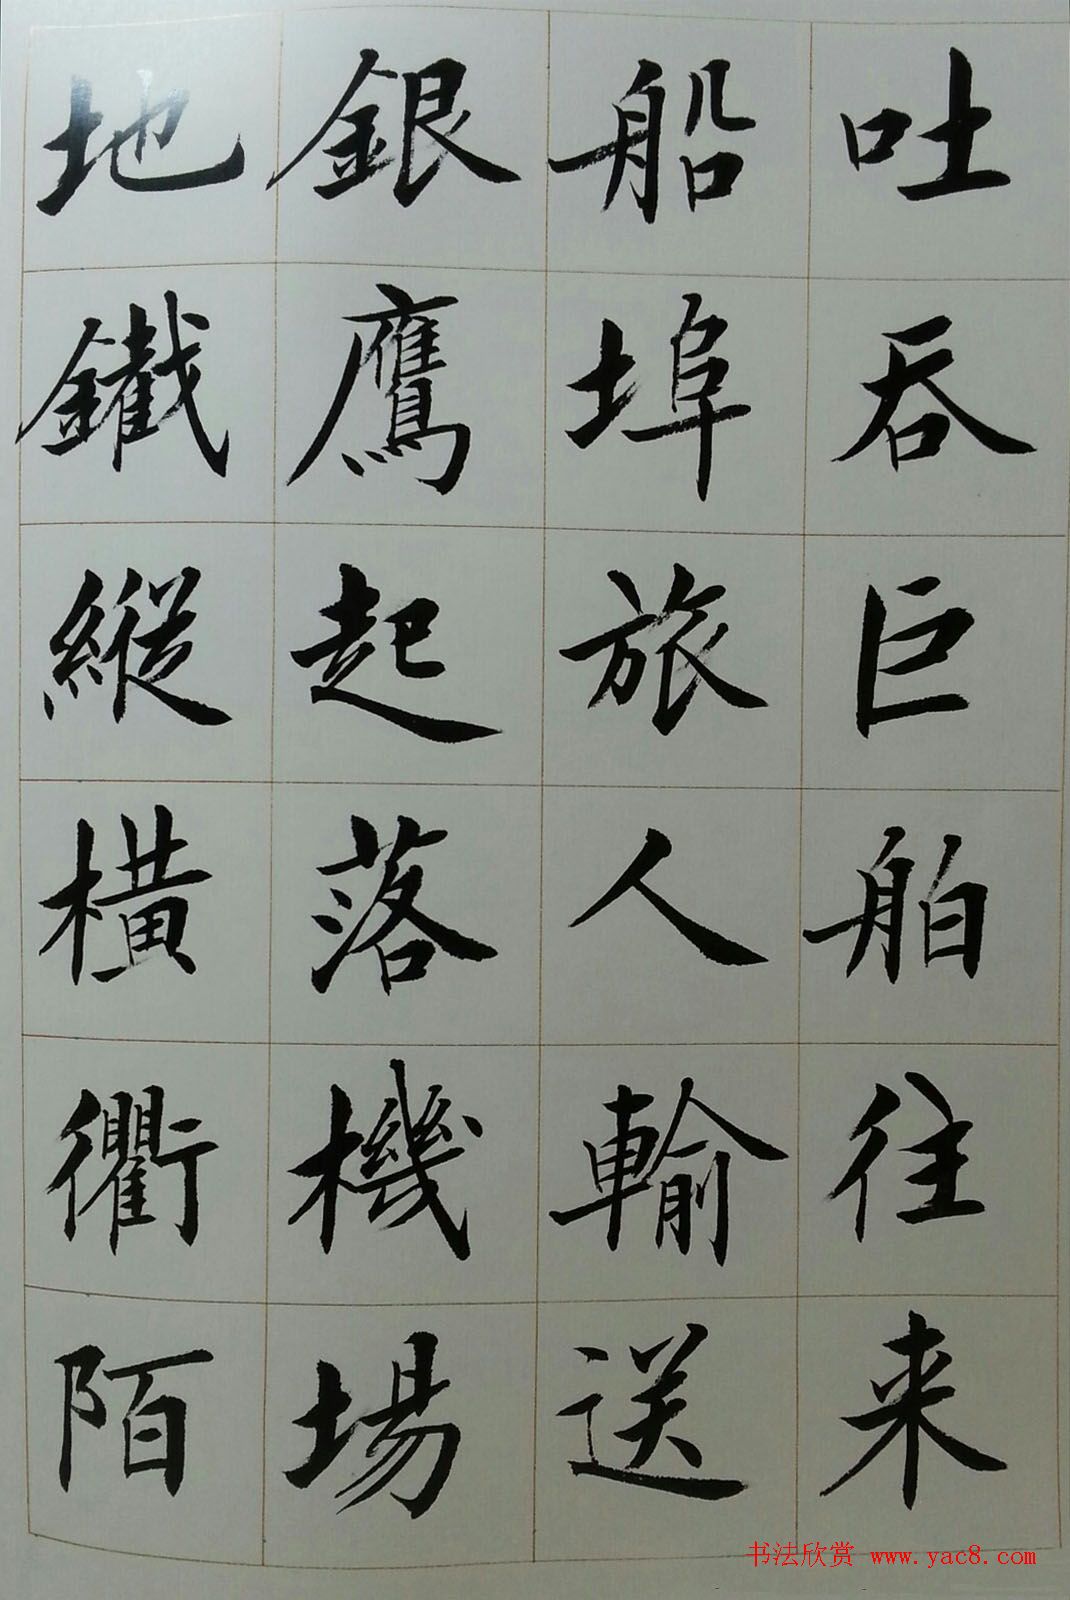 吐吞巨舶往来
船埠旅人輸送
銀鷹起落機場
地鐵縱橫衢陌
书法欣赏 www.yac8.com